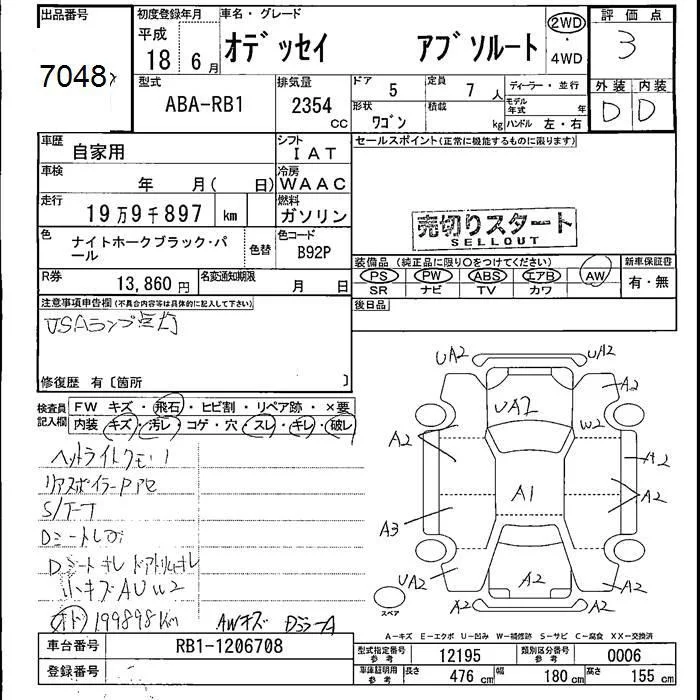 出品番号 初度登録年月 車名・グレード 評価点
7048 平成 18年 6月 オデッセイ アブソルート 2WD・4WD 3
型式 排気量 ドア 定員 ディーラー・並行 外装 内装
ABA-RB1 2354 cc 5 7人 モデル年式 年 D D
形状 ワゴン 積載 kg ハンドル 左・右
車歴 自家用 シフト IAT セールスポイント(正常に機能するものに限ります)
車検 年 月( 日) 冷房 WAAC
走行 19万9千897 km 燃料 ガソリン
売切りスタート
SELLOUT
色 ナイトホークブラック・パール 色替 色コード B92P
装備品 (純正品に限り〇をつけてください) 新車保証書
PS PW ABS エアB AW 有・無
SR ナビ TV カワ
R券 13,860円 名変通知期限 月 日
後日品
注意事項申告欄(不具合内容等は具体的に記入して下さい)
ランプ点灯
修復歴 有〔箇所 〕
検査員記入欄 FW キズ・飛石・ヒビ割・リペア跡・×要
内装 キズ・汚レ・コゲ・穴・スレ・キレ・破レ
UA2 U/A2
A2
UA2
W2
A2 A2
A1 A2
A3
UA2 A2 A2
A2 A2
スペア
ヘッドライトクモリ
リアスポイラー
S/T-T
Dシート
Dシート キレ ドアトリムキレ
小キズAUW2
199898Km AWキズ
A-キズ E-エクボ U-凹み W-補修跡 S-サビ C-腐食 XX-交換済
車台番号 RB1-1206708 型式指定番号 参考 12195 類別区分番号 参考 0006
登録番号 車庫証明用 参考 長さ 476cm 幅 180cm 高さ 155cm